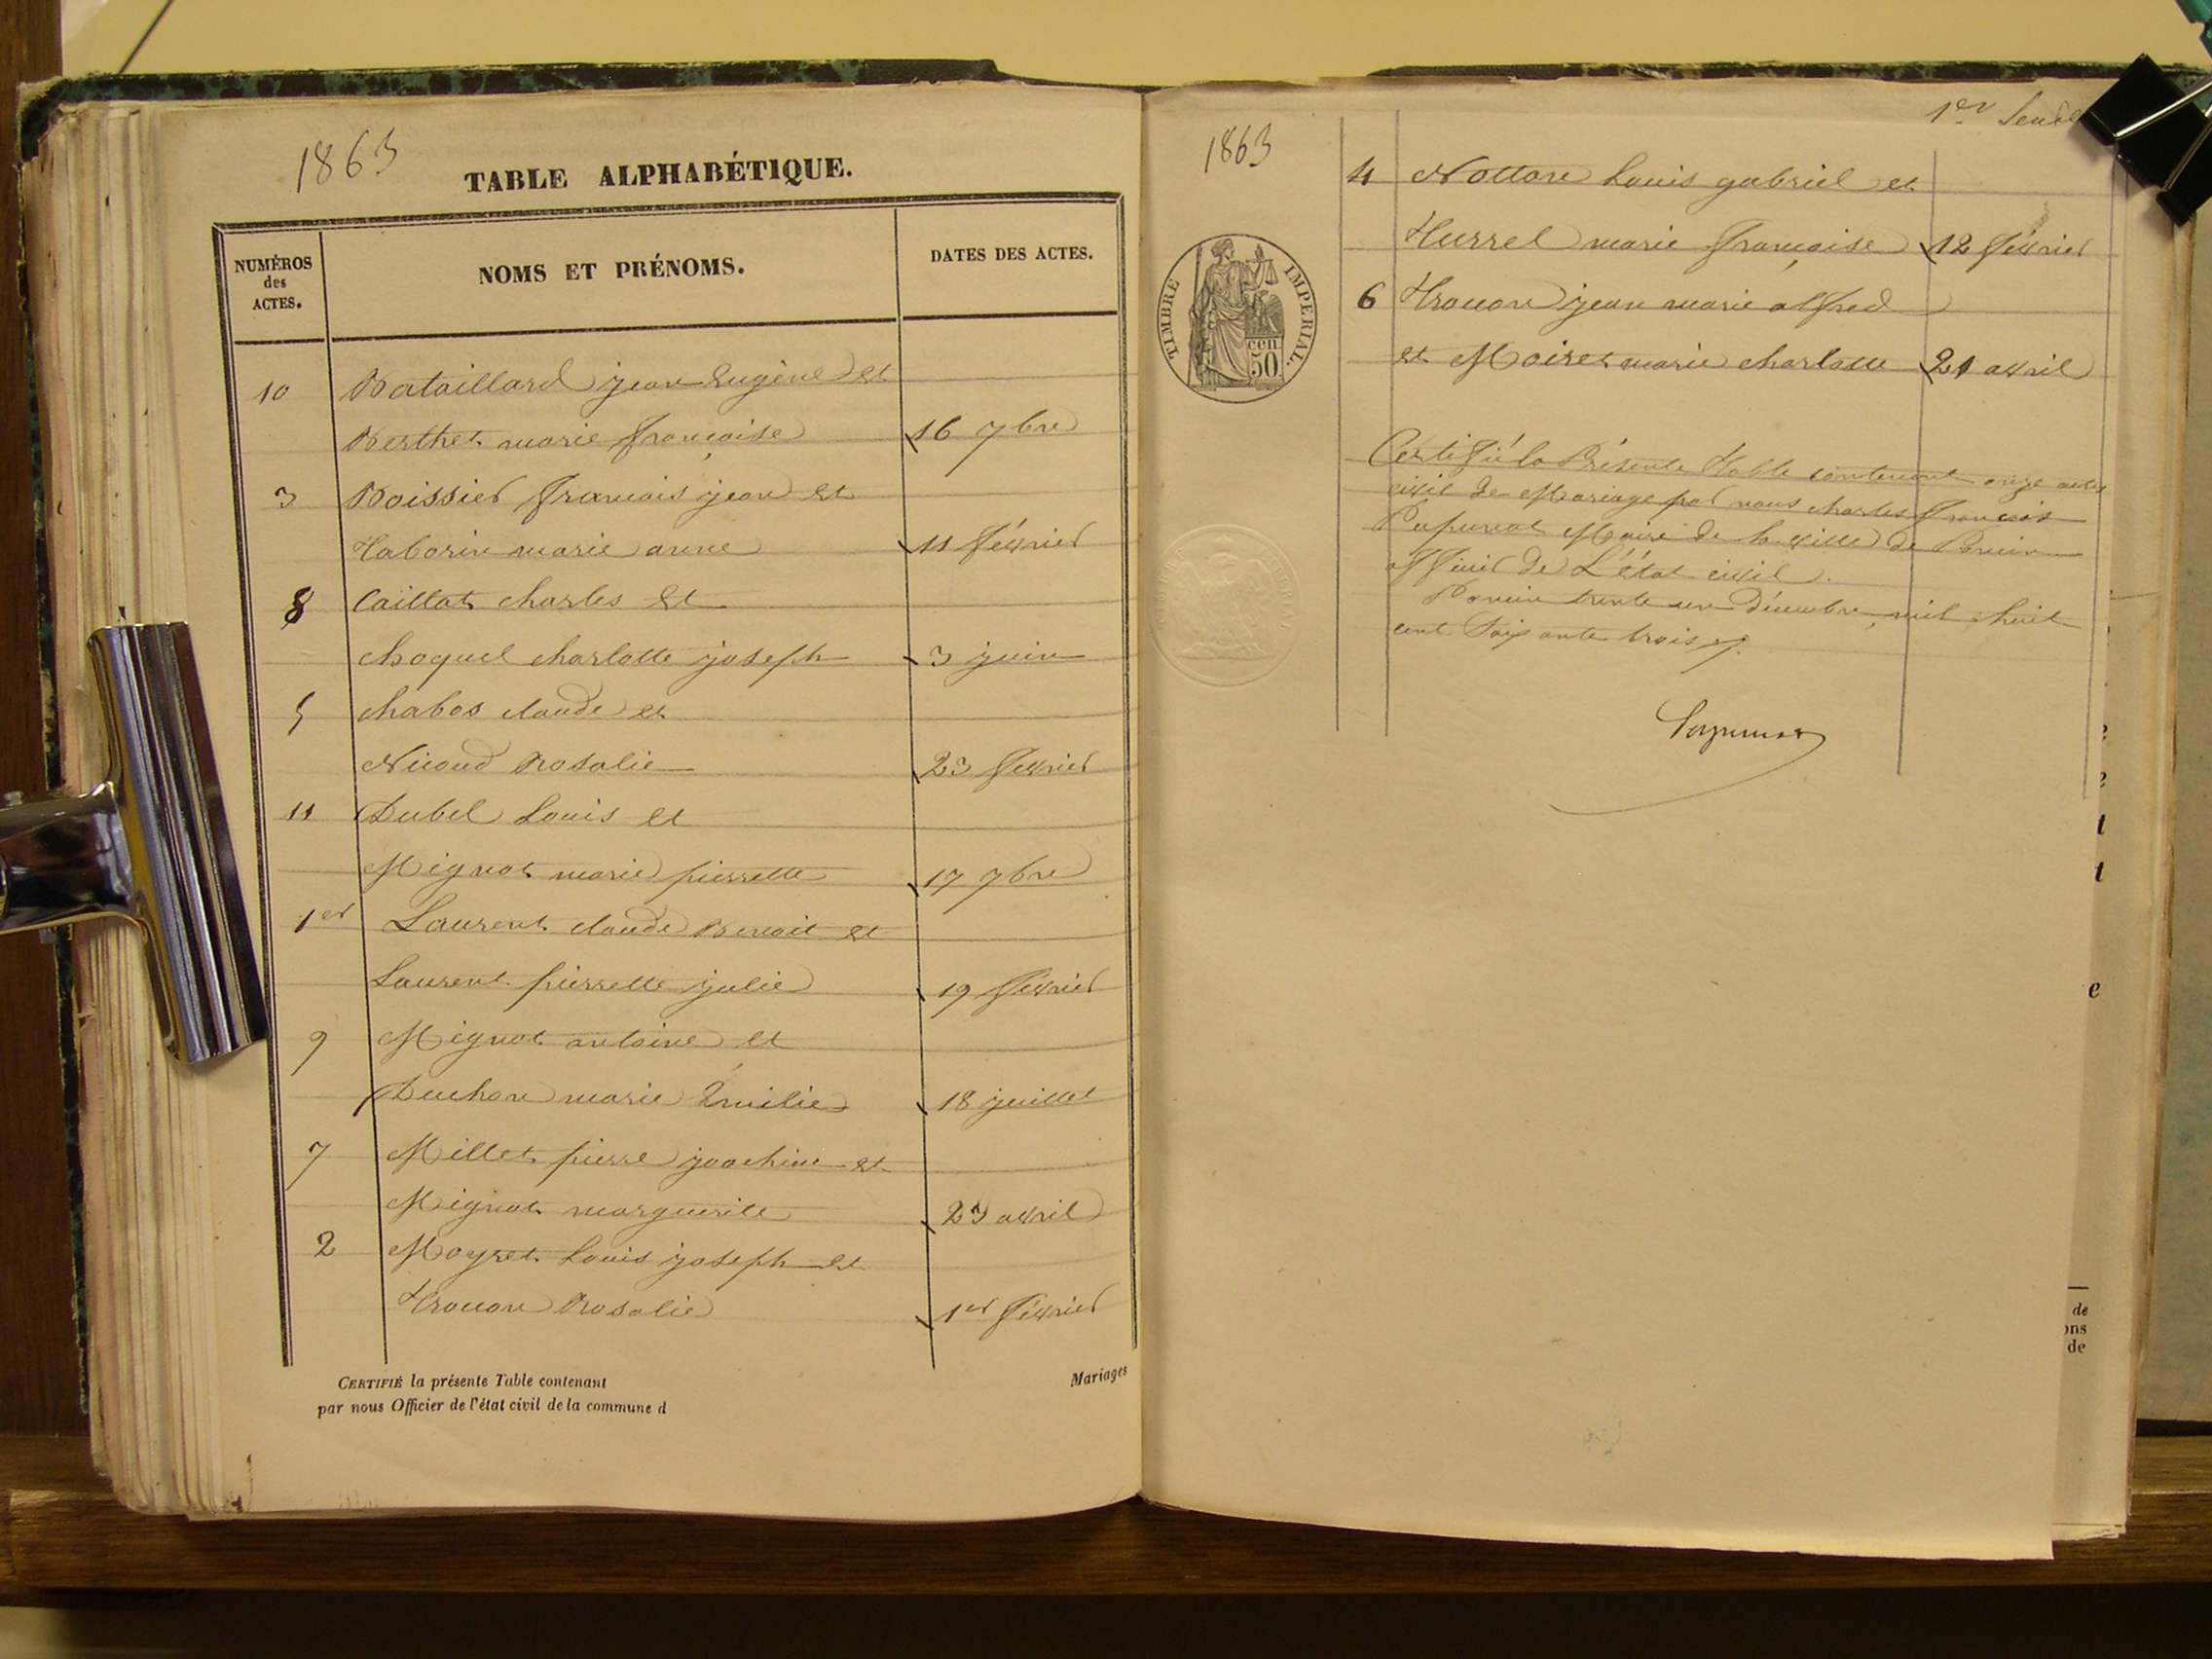 1863
TABLE ALPHABÉTIQUE.
NUMÉROS
des
ACTES.
NOMS ET PRÉNOMS.
DATES DES ACTES.
10 Bataillard jean Eugène et
Berthet marie françoise 16 7bre
3 Boissier françois jean et
Taborin marie anne 11 février
8 Caillat charles et
choquel charlotte joseph 3 juin
5 chabos claude et
Nicoud Rosalie 23 février
11 Dubel Louis et
Mignot marie pierrette 17 7bre
1er Laurent claude Benoit et
Laurent pierrette julie 19 février
9 Mignot antoine et
Duchon marie Emilie 18 juillet
7 Millet pierre joachim et
Mignot marguerite 23 avril
2 Moyret Louis joseph et
Trouon Rosalie 1er février
CERTIFIÉ la présente Table contenant
Mariages
par nous Officier de l'état civil de la commune d
1863
1er
TIMBRE IMPÉRIAL.
50 cen
4 Notton Louis gabriel et
Hurrel marie françoise 12 février
6 Trouon jean marie alfred
et Moiret marie charlotte 21 avril
Certifié la Présente Table contenant onze actes
civil de Mariage par nous charles François
Maire de la ville de
officier de L'état civil.
trente un Décembre mil huit
cent Soixante trois
e
t
t
e
de
ons
de